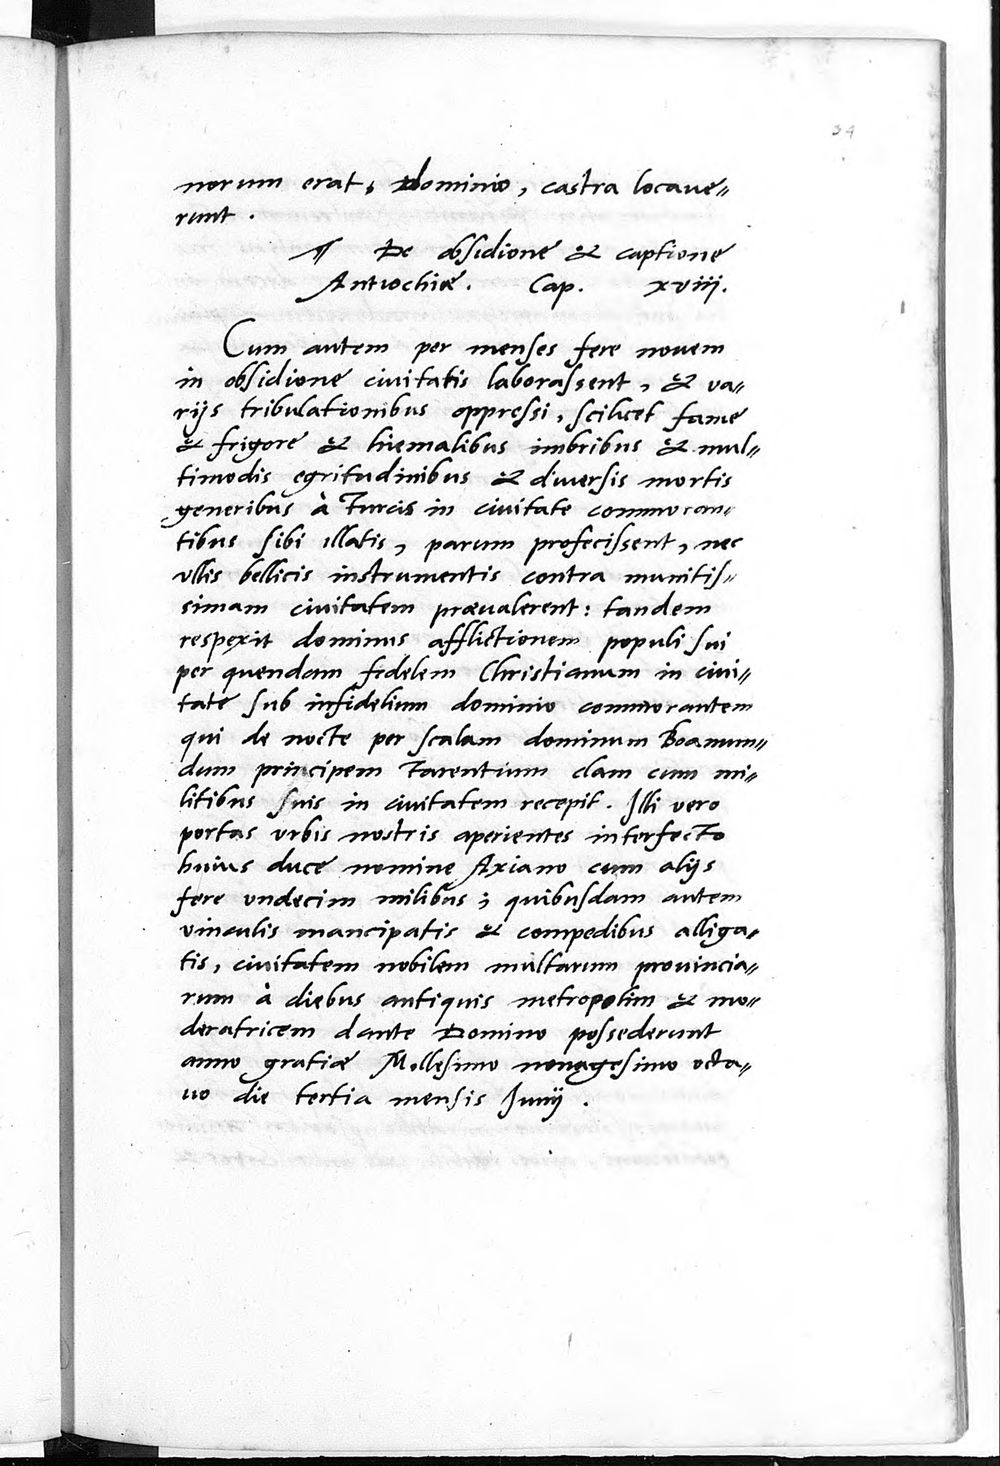 34
norum erat, Dominio, castra locaue〃
runt .
¶ De obsidione & captione
Antiochiæ. Cap. xviij.
Cum autem per menses fere nouem
in obsidione ciuitatis laborassent, & va〃
rijs tribulationibus oppressi, scilicet fame
& frigore & hiemalibus imbribus & mul〃
timodis egritudinibus & diuersis mortis
generibus à Turcis in ciuitate commoran〃
tibus sibi illatis, parum profecissent, nec
vllis bellicis instrumentis contra munitis〃
simam ciuitatem præualerent: tandem
respexit dominus afflictionem populi sui
per quendam fidelem Christianum in ciui〃
tate sub infidelium dominio commorantem
qui de nocte per scalam dominum Boamun〃
dum principem Tarentium clam cum mi〃
litibus suis in ciuitatem recepit. Illi vero
portas vrbis nostris aperientes interfecto
huius duce nomine Axiano cum alijs
fere vndecim milibus; quibusdam autem
vinculis mancipatis & compedibus alliga〃
tis, ciuitatem nobilem multarum prouincia〃
rum à diebus antiquis metropolim & mo〃
deratricem dante Domino possederunt
anno gratiæ Millesimo nonagesimo octa〃
uo die tertia mensis Iunij .